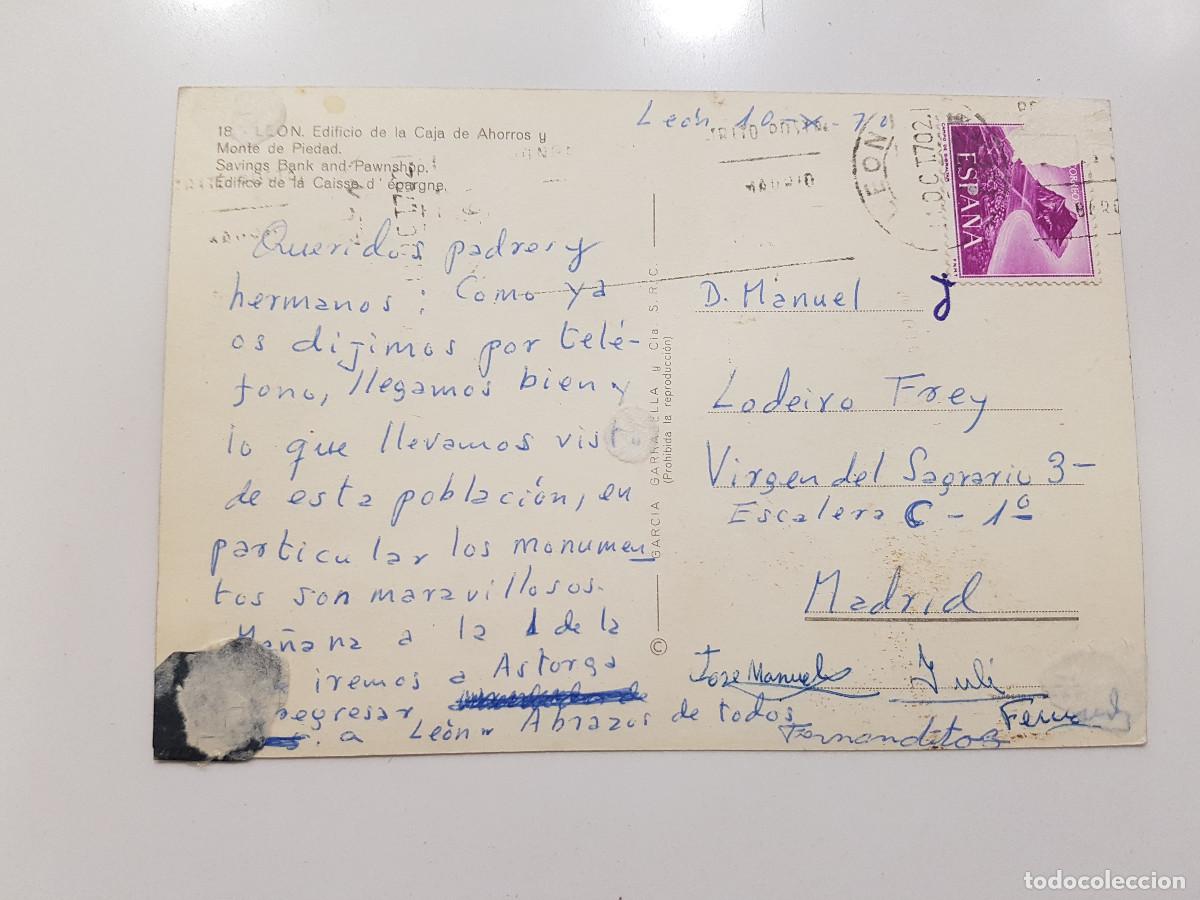 León 10-X-70
18 - LEON. Edificio de la Caja de Ahorros y
Monte de Piedad.
Savings Bank and Pawnshop.
Edifico de la Caisse d'épargne.
Queridos padres y
hermanos: Como ya
os dijimos por telé-
fono, llegamos bien y
lo que llevamos vist
de esta población, en
particular los monumen
tos son maravillosos.
Mañana a la 1 de la
iremos a Astorga
regresar
a León. Abrazos de todos
GARCIA GARRABELLA y Cia. S.R.C.
(Prohibida la reproducción)
©
LEON
OCT 70
ESPAÑA
D. Manuel
Lodeiro Frey
Virgen del Sagrario 3-
Escalera C - 1º
Madrid
Jose Manuel Juli
Fernanditos
todocoleccion